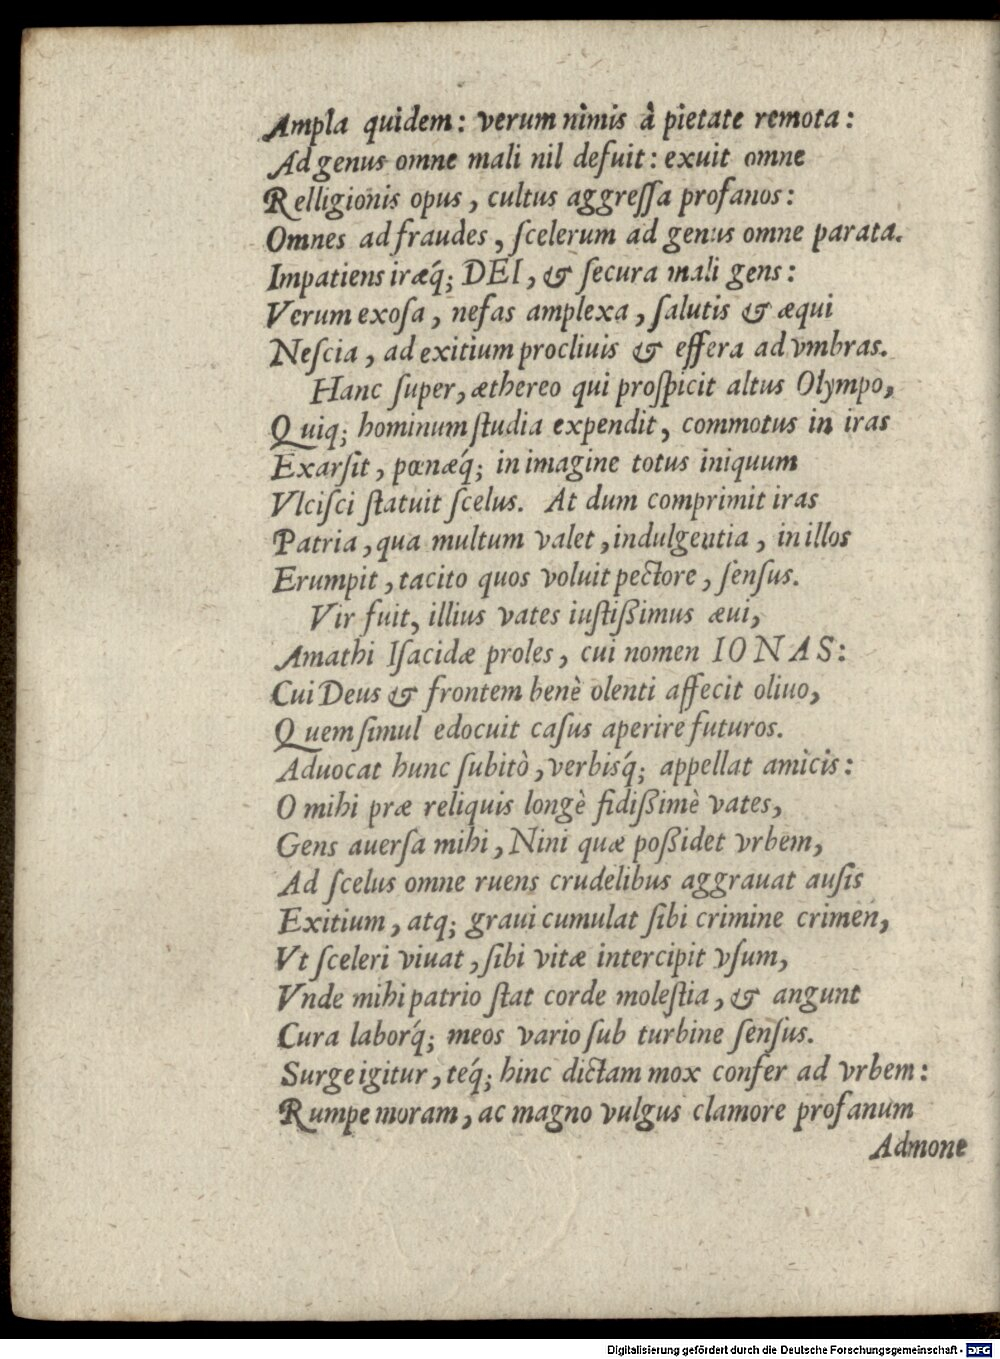 Ampla quidem: verum nimis à pietate remota:
Ad genus omne mali nil defuit: exuit omne
Relligionis opus, cultus aggreſſa profanos:
Omnes ad fraudes, ſcelerum ad genus omne parata.
Impatiens iræq́; DEI, & ſecura mali gens:
Verum exoſa, nefas amplexa, ſalutis & æqui
Neſcia, ad exitium procliuis & effera ad vmbras.
Hanc ſuper, æthereo qui proſpicit altus Olympo,
Quiq; hominum ſtudia expendit, commotus in iras
Exarſit, pœnæq́; in imagine totus iniquum
Vlciſci ſtatuit ſcelus. At dum comprimit iras
Patria, qua multum valet, indulgentia, in illos
Erumpit, tacito quos voluit pectore, ſenſus.
Vir fuit, illius vates iuſtißimus æui,
Amathi Iſacidæ proles, cui nomen IONAS:
Cui Deus & frontem benè olenti affecit oliuo,
Quem ſimul edocuit caſus aperire futuros.
Aduocat hunc ſubitò, verbisq́; appellat amicis:
O mihi præ reliquis longè fidißimè vates,
Gens auerſa mihi, Nini quæ poßidet vrbem,
Ad ſcelus omne ruens crudelibus aggrauat auſis
Exitium, atq; graui cumulat ſibi crimine crimen,
Vt ſceleri viuat, ſibi vitæ intercipit vſum,
Vnde mihi patrio ſtat corde moleſtia, & angunt
Cura laborq́; meos vario ſub turbine ſenſus.
Surge igitur, téq́; hinc dictam mox confer ad vrbem:
Rumpe moram, ac magno vulgus clamore profanum
Admone
Digitalisierung gefördert durch die Deutsche Forschungsgemeinschaft - DFG